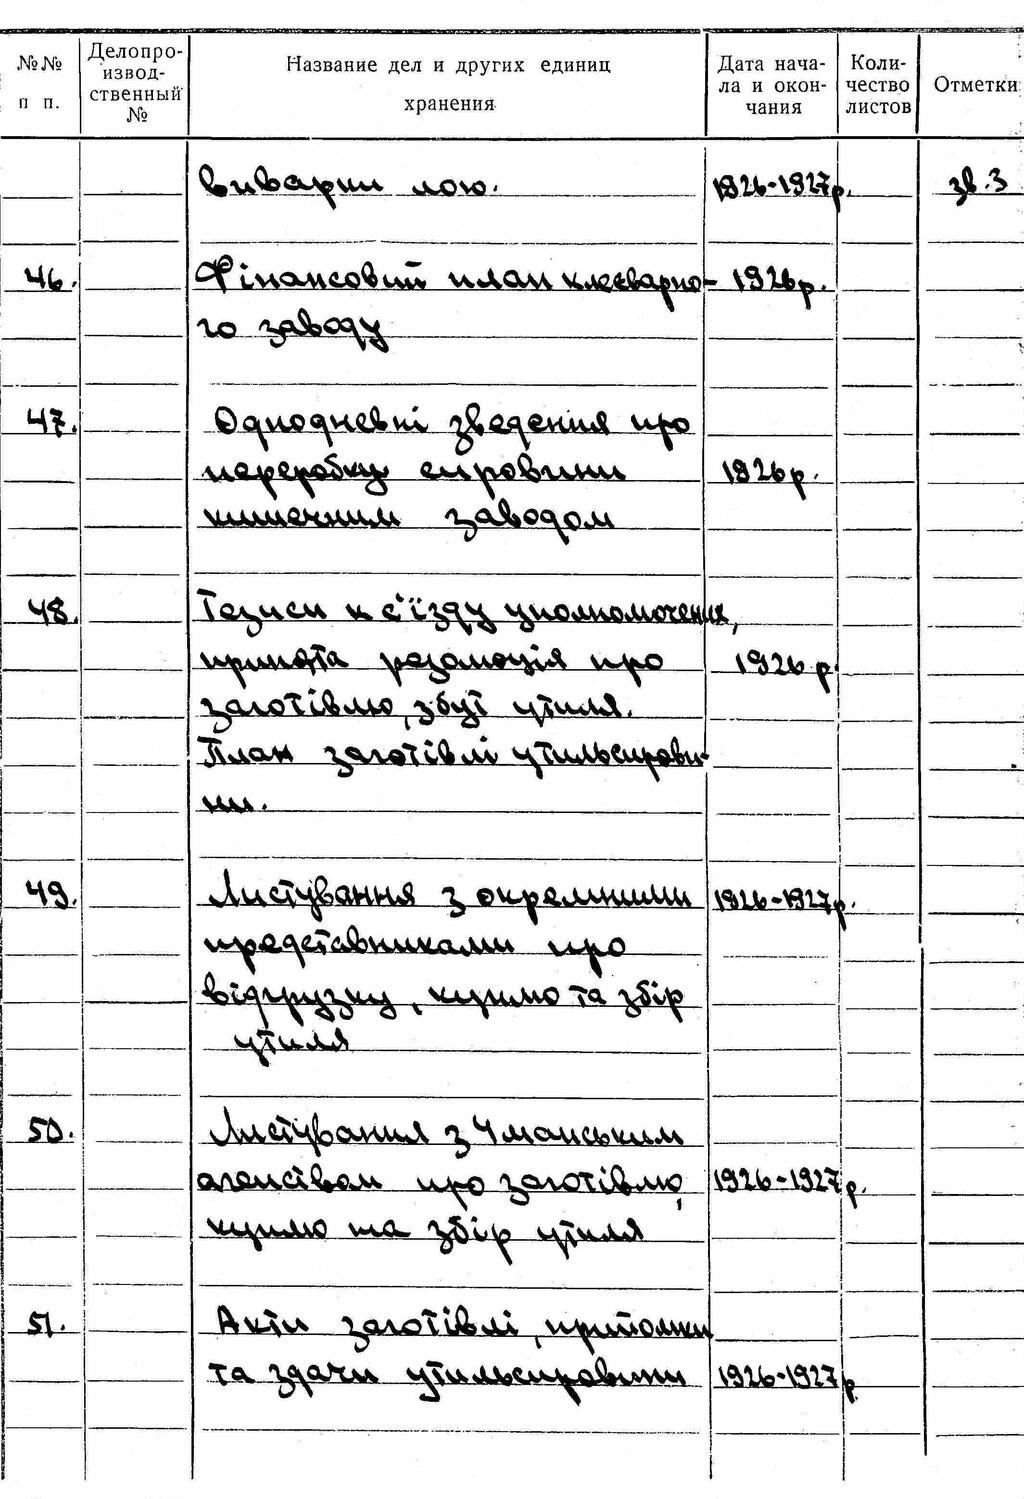 №№ п п.
Делопро-
извод-
ственный
№
Название дел и других единиц
хранения
Дата нача-
ла и окон-
чания
Коли-
чество
листов
Отметки
виварки лою. 1926-1927р. зв. 3
46. Фінансовий план клєєварно- 1926р.
го заводу
47. Однодневні зведення про
переробку сировини 1926р.
кишечним заводом
48. Тезиси к с'їзду уполномочених,
принята резолюція про 1926 р
заготівлю, збут утиля.
План заготівлі утильсирови-
ни.
49. Листування з окремими 1926-1927р.
представниками про
відгрузку, куплю та збір
утиля
50. Листування з Уманським
агенсівом про заготівлю, 1926-1927р.
куплю та збір утиля
51. Акти заготівлі, прийомки
та здачи утильсировини 1926-1927р